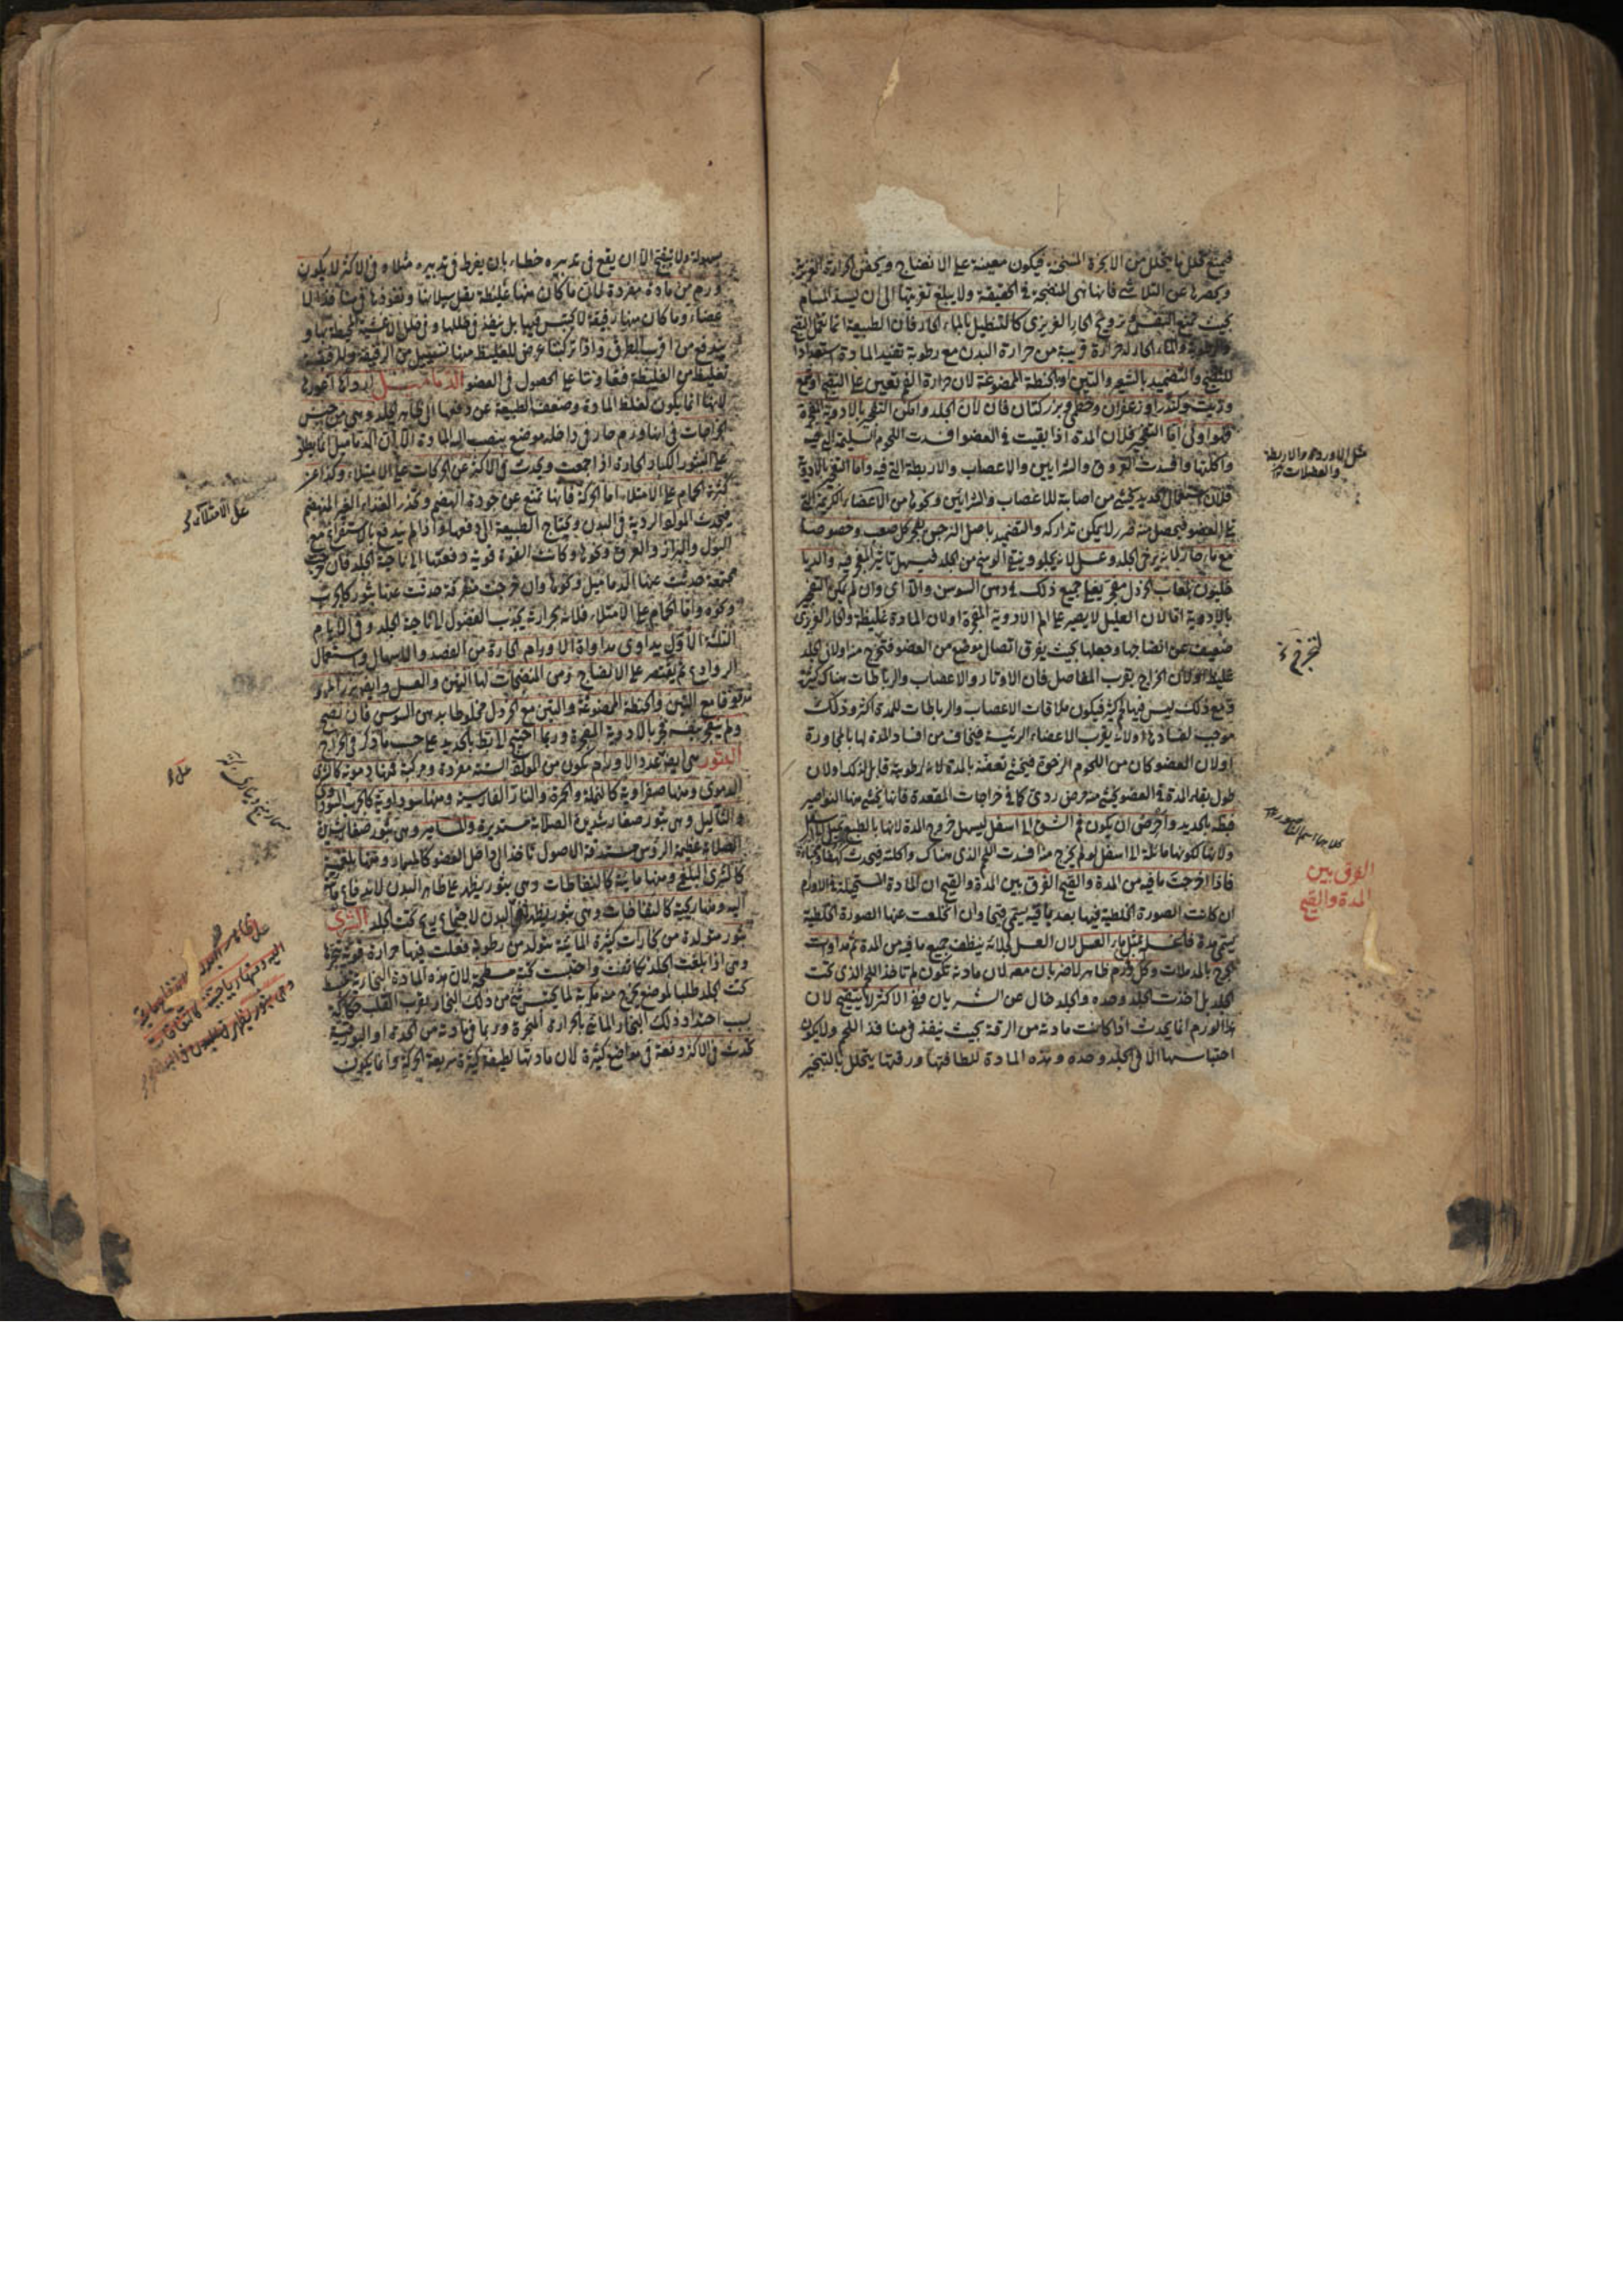 فيمنع تحلل ما يتحلل من الابخرة المسخنة فيكون معينة على الانضاج ويحقن الحرارة الغريزية
عن التلاشي فانها هي المنضجة في الحقيقة ولا يبلغ تغريتها الى ان يسد المسام
بحيث يمنع التنفس و ترويح الحار الغريزي كالتنطيل بالماء الحار فان الطبيعة انما
والماء الحار له حرارة قريبة من حرارة البدن مع رطوبة تفيد المادة استعدادا
والتضميد بالشعير والتين او بالحنطة الممضوغة لان حرارة الفم تعين على النضج
وزيت وكندر او زعفران وخطمي وبزر كتان فان لان الجلد وامكن التفجير بالادوية المفجرة
فهو اولى اما التفجير فلان المدة اذا بقيت في العضو افسدت اللحوم السليمة
واكلتها وافسدت العروق والشرايين والاعصاب والاربطة التي فيه واما التفجير بالادوية
فلان استعمال الحديد يخشى من اصابة للاعصاب والشرايين ونحوها من الاعضاء الكريمة التي
في العضو فيحصل منه ضرر لا يمكن تداركه والتضميد باصل النرجس يفجر كل صعب وخصوصا
مع ماء حار لانه يرخي الجلد وعسل لانه يجلو وينقي الوسخ من الجلد فيسهل تاثير المفجر فيه
بلعاب الخردل مفجر يفعل جميع ذلك في دهن السوسن وان لم يكن التفجير
بالادوية اما لان العليل لا يصبر على الم الادوية المفجرة او لان المادة غليظة والحار الغريزي
ضعيف عن انضاجها وجعلها بحيث يفرق اتصال موضع من العضو فتخرج منه او لان الجلد
غليظ او لان الخراج بقرب المفاصل فان الاوتار والاعصاب والرباطات هناك كثيرة
ومع ذلك ليس فيها لحم كثير فيكون ملاقات الاعصاب والرباطات للمدة اكثر وذلك
موجب لفسادها او لانه بقرب الاعضاء الرئيسة فيخاف من افساد المدة لها بالمجاورة
او لان العضو كان من اللحوم الرخوة فيخشى تعفنه بالمدة لانه لرطوبته قابل لذلك او لان
طول بقاء المدة في العضو يخشى منه مرض ردي كما في خراجات المقعدة فانها يخشى منها النواصير
فبطه بالحديد واحرص ان يكون في الشق الى اسفل ليسهل خروج المدة لانها بالطبع
ولانها لكونها مائلة الى اسفل لو لم يخرج منه افسدت اللحم الذي هناك واكلته فيحدث
فاذا اخرجت ما فيه من المدة والقيح الفرق بين المدة والقيح ان المادة المستحيلة في الاورام
ان كانت الصورة الخلطية فيها بعد باقية يسمى قيحا وان انخلعت عنها الصورة الخلطية
يسمى مدة فاغسله بمثل ماء العسل لان العسل لجلائه ينظف جميع ما فيه من المدة ثم داوه
بالمدملات وكل ورم ظاهر لا ضربان معه لان مادته تكون لم تاخذ اللحم الذي تحت
الجلد بل اخذت الجلد وحده والجلد خال عن الشريان فهو في الاكثر لا يتقيح لان
هذا الورم انما يحدث اذا كانت مادته من الرقة بحيث ينفذ في منافذ اللحم ولا يكون
احتباسها الا في الجلد وحده وهذه المادة للطافتها ورقتها يتحلل بالتبخير
الفرق بين
المدة والقيح
بسهولة ولا يتقيح الا ان يقع في تدبيره خطاء بان يفرط في تدبيره مثلا و في الاكثر لا يكون
ورم من مادة مفردة لان ما كان منها غليظة يقل سيلانها ونفوذها في منافذ الا
عضاء وما كان منها رقيقة لا يحتبس فيها بل ينفذ في خللها
واذا تركبتا عرض للغليظ منها تسييل من الرقيقة وللرقيقة
تغليظ من الغليظة فتعاونتا على الحصول في العضو الدماميل
لانها انما يكون لغلظ المادة وضعف الطبيعة عن دفعها الى ظاهر الجلد وهي من جنس
الخراجات في انها ورم حار في داخله موضع ينصب اليه المادة الا ان الدماميل انما يطلق
على البثور الكبار الحارة اذا جمعت ويحدث في الاكثر عن الحركات على الامتلاء وكذا عن
كثرة الحمام على الامتلاء اما الحركة فانها تمنع عن جودة الهضم وتحدر الغذاء الغير المنهضم
فيحدث المواد الردية في البدن ويحتاج الطبيعة الى دفعها واذا لم يندفع بالاستفراغ مع
البول والبراز والعرق ونحوها وكانت القوة قوية ودفعتها الى ناحية الجلد فان خرجت
مجتمعة حدثت عنها الدماميل ونحوها وان خرجت متفرقة حدثت عنها بثور كالجرب
ونحوه واما الحمام على الامتلاء فلانه بحرارته يجذب الفضول الى ناحية الجلد و في الايام
الثلثة الاول يداوى مداواة الاورام الحارة من الفصد والاسهال واستعمال
الروادع ثم يقتصر على الانضاج ومن المنضجات لها التين والعسل وايضا بزر المرو
مدقوقا مع اللبن والحنطة الممضوغة والتين مع الخردل مخلوطا بدهن السوسن فان نضج
ولم ينفجر بنفسه فجر بالادوية المفجرة وربما احتيج الى البط بالحديد على حسب ما ذكر في الخراج
البثور هي بعينه عدد الاورام يكون من المواد الستة مفردة ومركبة فمنها دموية كالشرى
الدموي ومنها صفراوية كالنملة والحمرة والنار الفارسية ومنها سوداوية كالجرب السوداوي
والثآليل وهي بثور صغار شديدة الصلابة مستديرة والمسامير وهي بثور صغار شديدة
الصلابة عظيمة الرؤس مستدقة الاصول نافذة الى داخل العضو كالمسمار ومنها بلغمية
كالشرى البلغمي ومنها مائية كالنفاطات وهي بثور يظهر على ظاهر البدن لاندفاع ماء
اليه ومنها ريحية كالنفاخات وهي بثور يظهر في البدن لاجتماع ريح تحت الجلد الشرى
بثور متولدة من بخارات كثيرة المائية يتولد من رطوبة فعلت فيها حرارة قوية
وهي اذا بلغت الجلد تكاثفت واحتبست تحته مسطحة لان هذه المادة البخارية
تحت الجلد طلبا لموضع يخرج منه مكربة لما يحتبس شيء من ذلك البخار بقرب القلب حكاكة
بسبب احتداد ذلك البخار المائي بالحرارة المبخرة وربما في مادته من الحدة او البورقية
يحدث في الاكثر دفعة في مواضع كثيرة لان مادتها لطيفة كثيرة سريعة الحركة وانما يكون